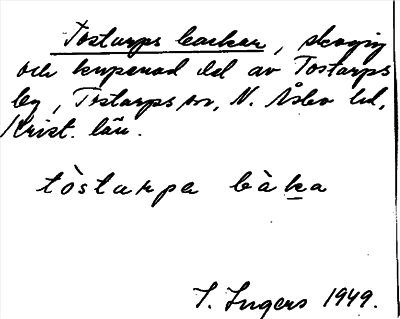 Tostarps backar, skogig
och kuperad del av Tostarps
by, Tostarps sn, N. Åsbo hd,
Krist. län.
tòstarpa bàka
I. Ingers 1949.